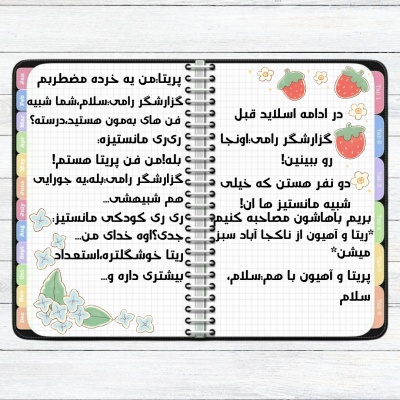 در ادامه اسلاید قبل
گزارشگر رامی:اونجا
رو ببینین!
دو نفر هستن که خیلی
شبیه مانستیز ها ان!
بریم باهاشون مصاحبه کنیم
*ریتا و آهیون از ناکجا آباد سبز
میشن*
پریتا و آهیون با هم:سلام،
سلام
پریتا:من یه خرده مضطربم
گزارشگر رامی:سلام،شما شبیه
فن های به‌مون هستید،درسته؟
ری‌ری مانستیزه:
بله!من فن پریتا هستم!
گزارشگر رامی:بله،یه جورایی
هم شبیهشی...
ری ری کودکی مانستیز:
جدی؟اوه خدای من...
ریتا خوشگلتره،استعداد
بیشتری داره و...